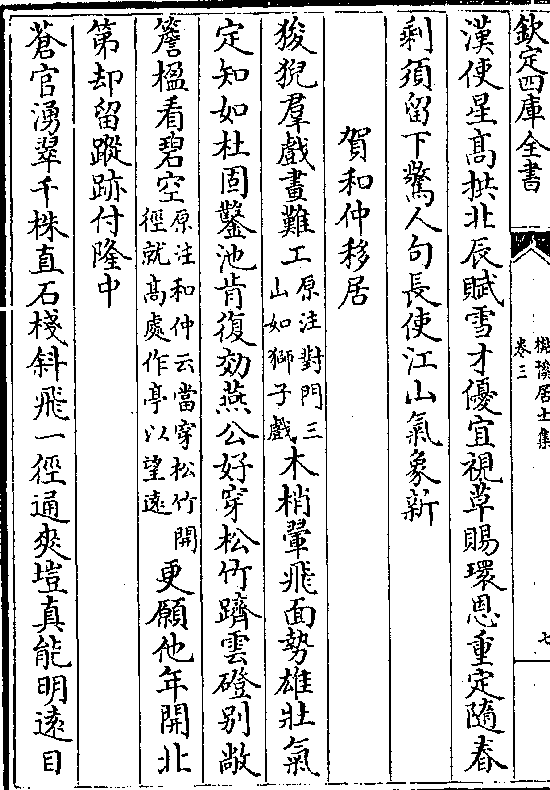 欽定四庫全書
檆溪居士集
卷三
七
漢使星髙拱北辰賦雪才優宜視草賜環恩重定隨春
剩須留下驚人句長使江山氣象新
賀和仲移居
狻猊羣戲畫難工原注對門三山如獅子戲木梢翬飛面勢雄壯氣
定知如杜固鑿池肯復効燕公好穿松竹躋雲磴别敞
簷楹看碧空原注和仲云當穿松竹開徑就髙處作亭以望遠更願他年開北
第却留蹤跡付隆中
蒼官湧翠千株直石棧斜飛一徑通爽塏真能明遠目